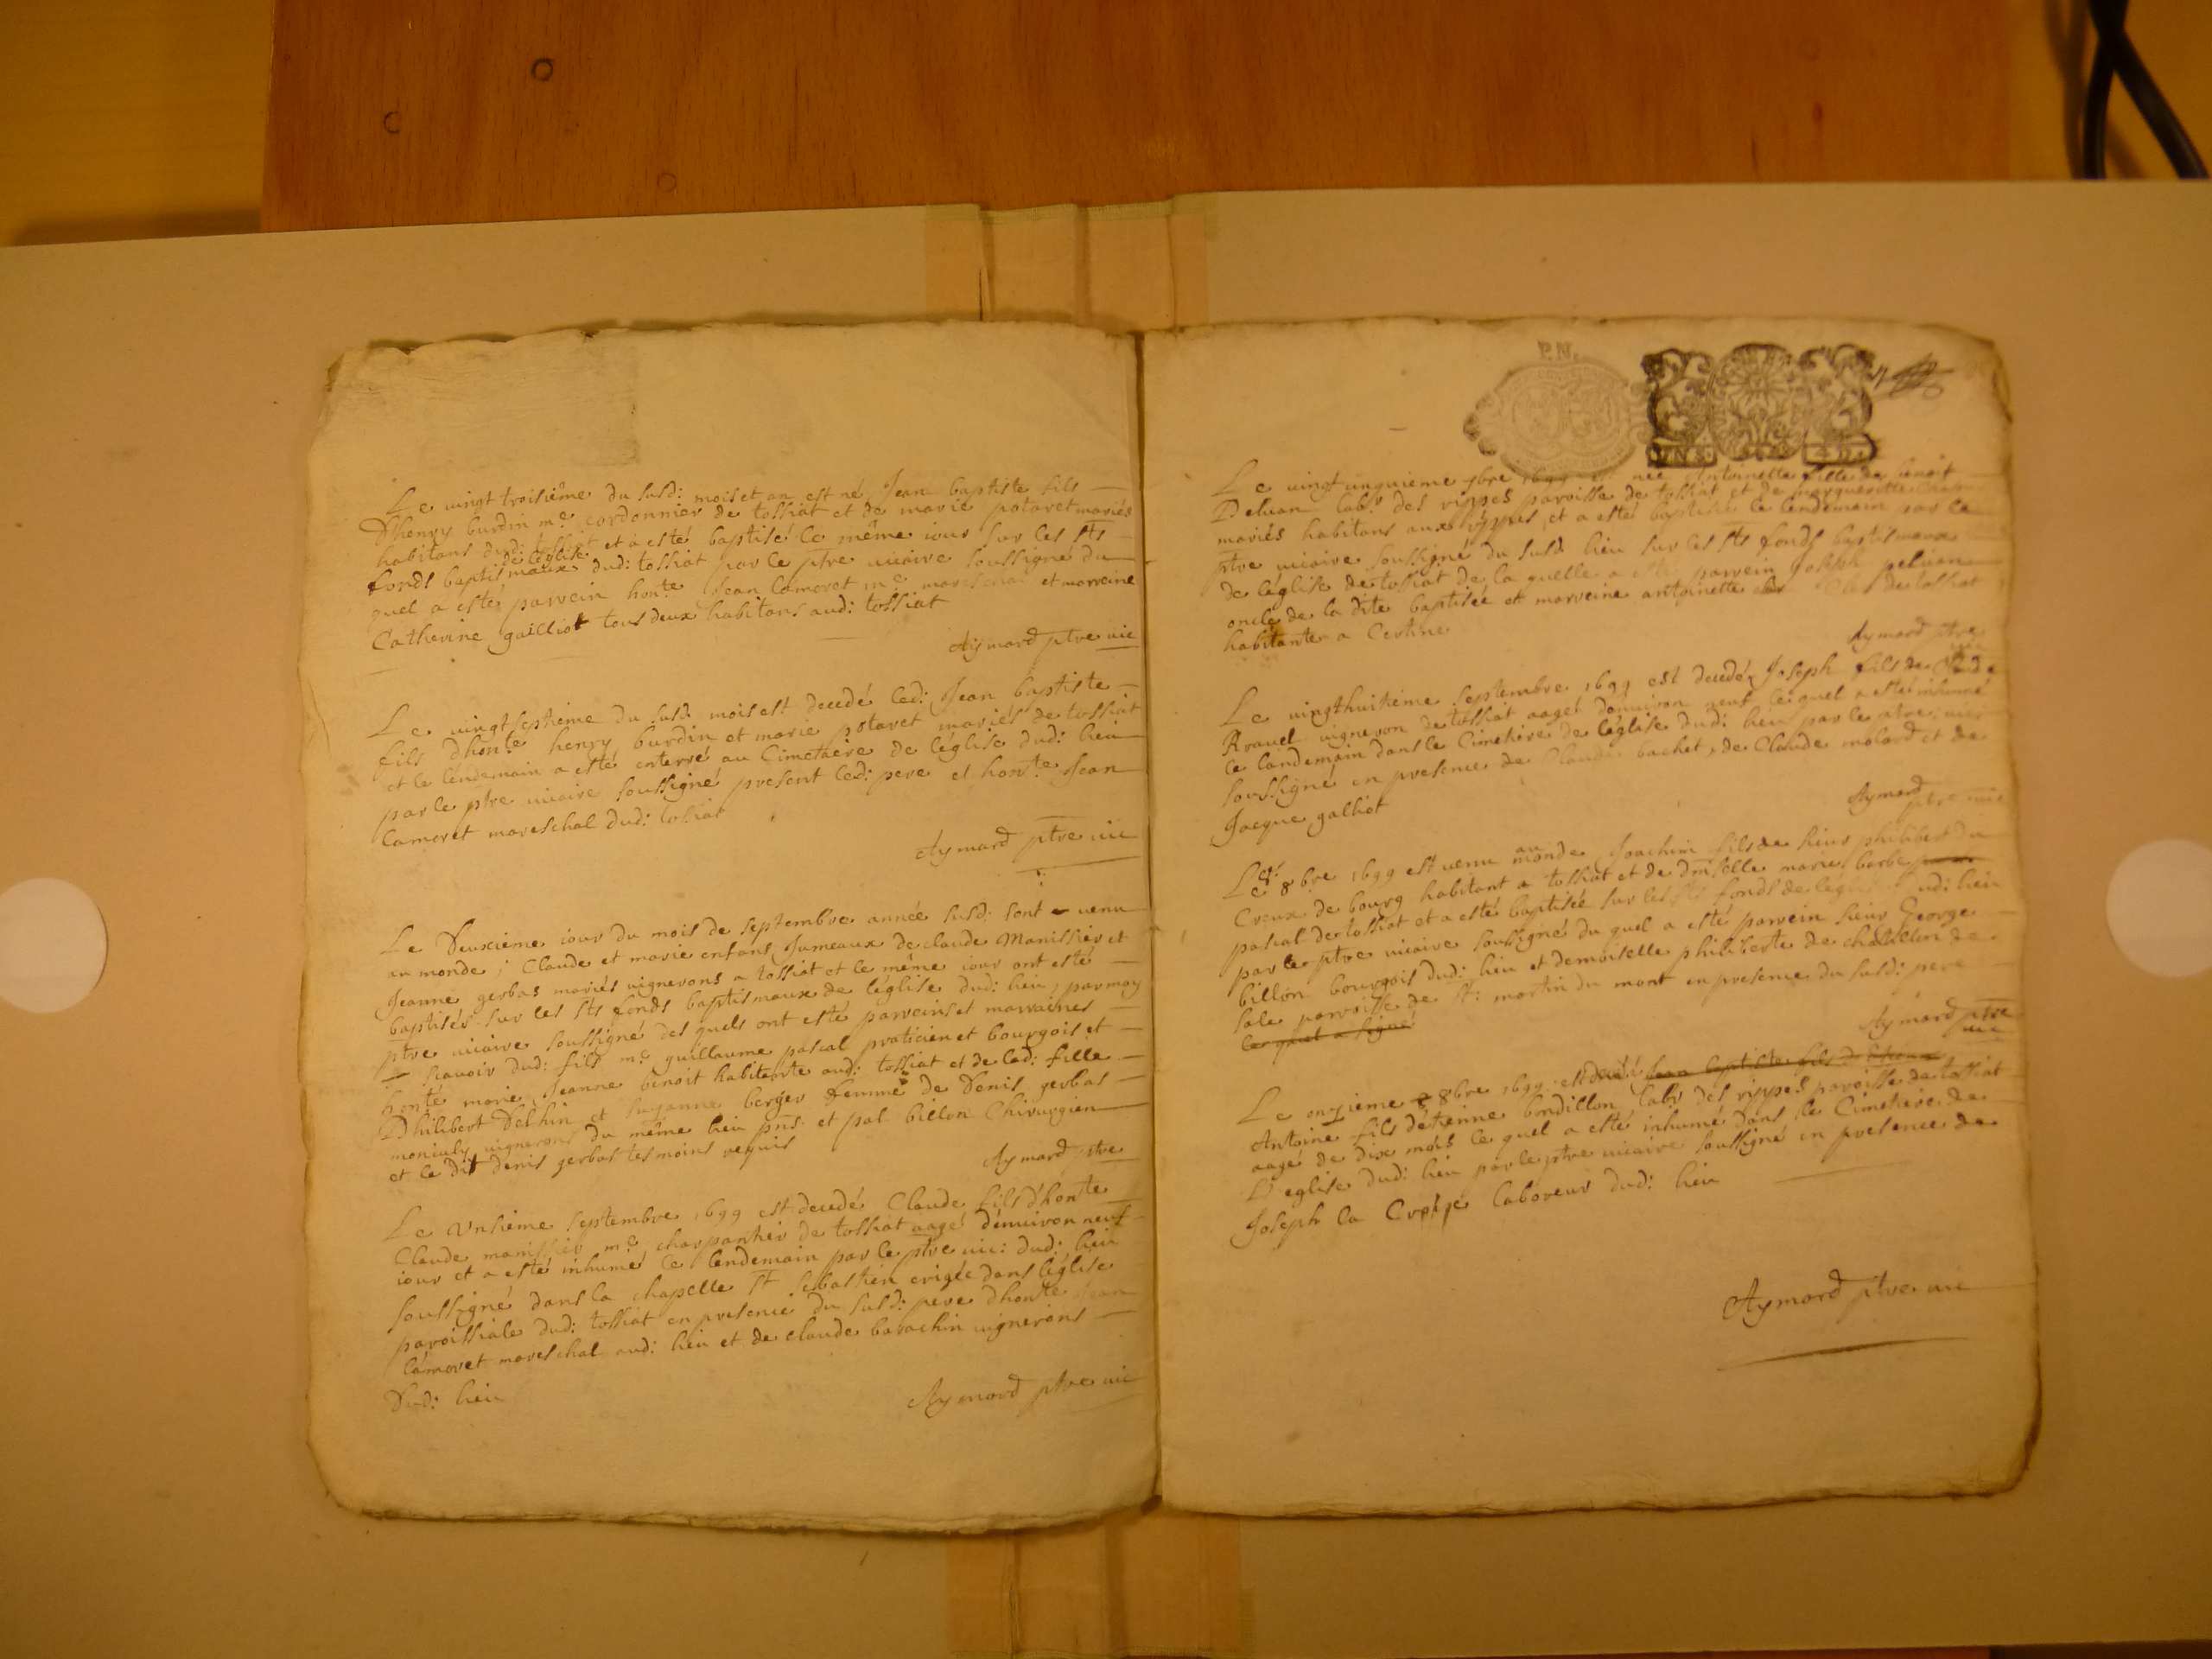 Le vingt troisième du susd: mois et an est né Jean baptiste fils
Dhenry burdin me cordonnier de tossiat et de marie potaret mariés
habitans dud: tossiat et a esté baptisé le même iour sur les sts
fonds baptismaux de léglise dud: tossiat par le ptre vicaire soussigné du
quel a esté parrein honte Jean Lamoret me mareschal et marreine
Catherine gailliot tous deux habitans aud: tossiat
Aymard ptre vic
Le vingt septieme du susd: mois est decedé led: Jean baptiste
fils dhonte henry burdin et marie potaret mariés de tossiat
et le lendemain a esté enterré au Cimetaere de léglise dud: lieu
par le ptre vicaire soussigné present led: pere et honte Jean
Lamoret mareschal dud: tossiat
Aymard ptre vic
Le Deuxieme iour du mois de septembre année susd: sont venu
au monde; Claude et marie enfans Jumeaux de claude Manissier et
Jeanne gerbas mariés vignerons a tossiat et le même iour ont esté
baptisés sur les sts fonds baptismaux de léglise dud: lieu, par moy
ptre vicaire soussigné des quels ont esté parreins et marraines
scavoir dud: fils me guillaume pascal praticien et bourgois et
honte marie Jeanne benoit habitante aud: tossiat et de lad: fille
Philibert Delhin et suzanne berger femme de Denis gerbas
vignerons du même lieu pns: et pal billon Chirurgien
et le dit denis gerbas tesmoins requis
Aymard ptre
Le Vnsieme septembre 1699 est decedé Claude fils dhonte
Claude manissier me charpantier de tossiat aagé denuiron neuf
iour et a esté inhumé le lendemain par le ptre vic: dud: lieu
soussigné dans la chapelle st sebastien erigée dans léglise
paroissiale dud: tossiat en presence du susd: pere dhonte Jean
Lamoret mareschal aud: lieu et de claude barachin vignerons
Dud: lieu
Aymard ptre vic
P.N.
Le vingt unquieme 7bre 1699 est née Antoinette fille de benoit
Peluan labr des rippes paroisse de tossiat et de marguerite
mariés habitans aux rippes et a esté baptisée le lendemain par le
ptre vicaire soussigné du susd: lieu sur les sts fonds baptismaux
de léglise de tossiat de la quelle a esté parrein Joseph peluan
oncle de la dite baptisée et marreine antoinette de tossiat
habitante a Certine
Aymard ptre
Le vingthuitieme septembre 1699 est decedé Joseph fils de Claude
Rravel vigneron de tossiat aagé denuiron neuf le quel a esté inhumé
le landemain dans le Cimetiere de léglise dud: lieu par le ptre vic
soussigné en presence de Claude bachet, de Claude molard et de
Jacque galliot
Aymard ptre vic
Le 8bre 1699 est venu au monde Joachim fils de sieur philibert du
Creux de bourg habitant a tossiat et de dmselle marie barbe
pascal de tossiat et a esté baptisée sur les sts fonds de léglise dud: lieu
par le ptre vicaire soussigné du quel a esté parrein sieur George
billon bourgois dud: lieu et demoiselle philiberte de chatillon de
sale parroisse de st: martin du mont en presence du susd: pere
le quel a signé
Aymard ptre vic
Le onzieme 8bre 1699 est decedé Jean baptiste fils de
Antoine fils détienne bondillon labr des rippes paroisse de tossiat
aagé de dix mois le quel a esté inhumé dans le Cimetiere de
L'eglise dud: lieu par le ptre vicaire soussigné en presence de
Joseph la Croix laboreur dud: lieu
Aymard ptre vic